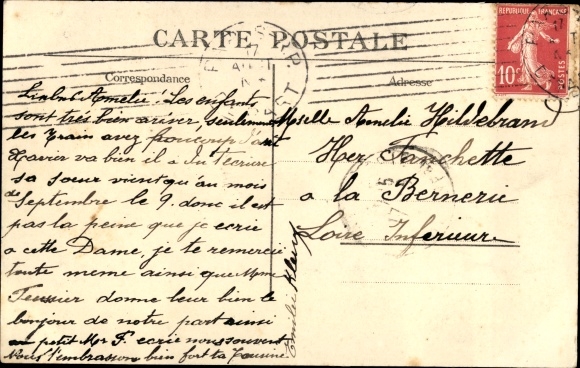 CARTE POSTALE
Correspondance
Adresse
RÉPUBLIQUE FRANÇAISE
10c
POSTES
Amelie. Les enfants
sont très bien arriver, seulement
les train avez beaucoup
Xavier va bien il a du t'ecrire
sa soeur vient qu'au mois
de Septembre le 9. donc il est
pas la peine que je ecrie
a cette Dame, je te remercie
toute meme ainsi que Mme
Teissier donne leur bien le
bonjour de notre part ainsi
petit Mor F. ecrie nous souvent
Nous t'embrasson bien fort ta Cousine
Amelie Kleinz
Mselle Amelie Hildebrand
Her Fanchette
a la Bernerie
Loire Inferieure